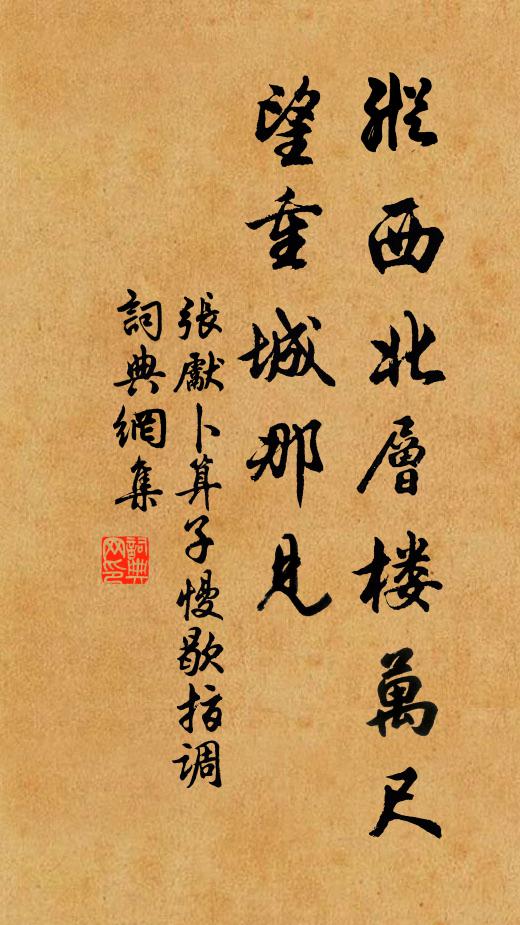 縱西北層楼萬尺
望重城那見
張獻卜算子慢歇指调
詞典網集
詞典網印